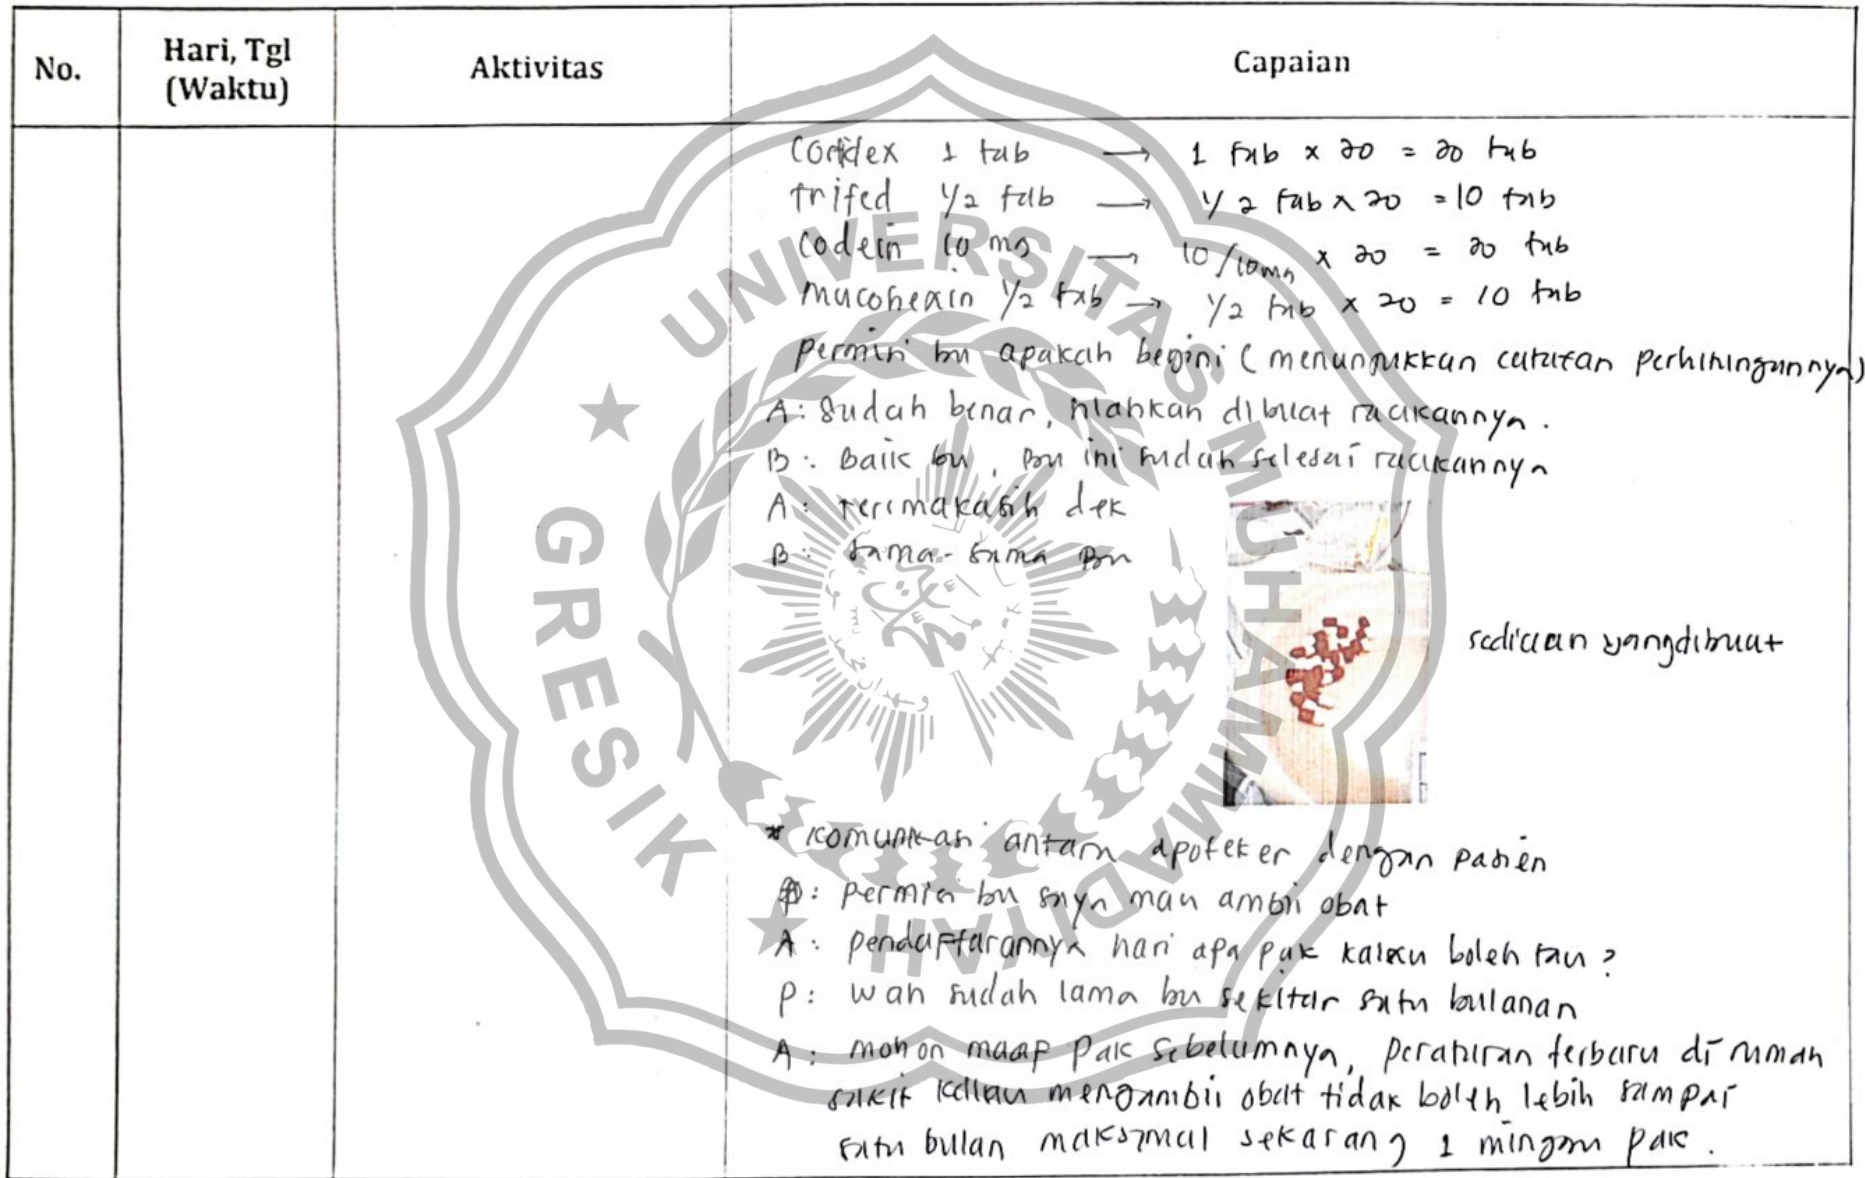 No.
Hari, Tgl
(Waktu)
Aktivitas
Capaian
Coridex 1 tab → 1 tab x 20 = 20 tab
trifed 1/2 tab → 1/2 tab x 20 = 10 tab
codein 10 mg → 10/10mg x 20 = 20 tab
mucohexin 1/2 tab → 1/2 tab x 20 = 10 tab
permisi bu apakah begini (menunjukkan catatan perhitungannya)
A: Sudah benar, silahkan dibuat racikannya.
B: Baik bu, Bu ini sudah selesai racikannya
A: terimakasih dek
B: sama-sama Bu
sediaan yang dibuat
* Komunikasi antara apoteker dengan pasien
P: permisi bu saya mau ambil obat
A: pendaftarannya hari apa pak kalau boleh tau?
P: wah sudah lama bu sekitar satu bulanan
A: mohon maap pak sebelumnya, peraturan terbaru di rumah
sakit kalau mengambil obat tidak boleh lebih sampai
satu bulan maksimal sekarang 1 minggu pak.
UNIVERSITAS MUHAMMADIYAH
GRESIK